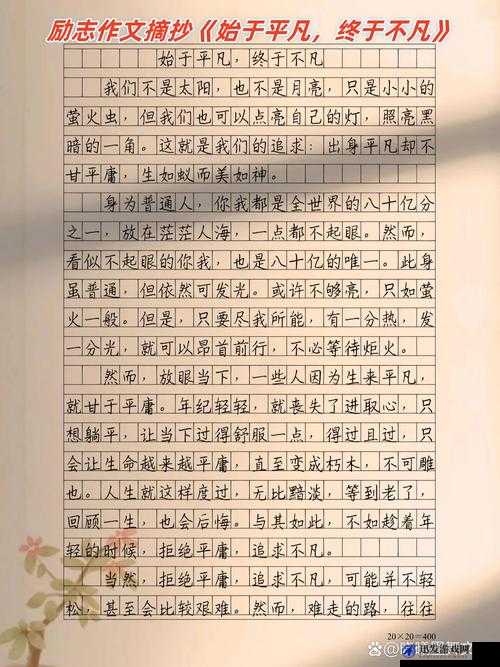 励志作文摘抄《始于平凡，终于不凡》
始于平凡，终于不凡
我们不是太阳，也不是月亮，只是小小的
萤火虫，但我们也可以点亮自己的灯，照亮黑
暗的一角。这就是我们的追求：出身平凡却不
甘平庸，生如蚁而美如神。
身为普通人，你我都是全世界的八十亿分
之一，放在茫茫人海，一点都不起眼。然而，
看似不起眼的你我，也是八十亿的唯一。此身
虽普通，但依然可发光。或许不够亮，只如萤
火一般。但是，只要尽我所能，有一分热，发
一分光，就可以昂首前行，不必等待炬火。
然而，放眼当下，一些人因为生来平凡，
就甘于平庸。年纪轻轻，就丧失了进取心，只
想躺平，让当下过得舒服一点，得过且过，只
会让生命越来越平庸，直至变成朽木，不可雕
也。人生就这样度过，无比黯淡，等到老了，
回顾一生，也会后悔。与其如此，不如趁着年
轻的时候，拒绝平庸，追求不凡。
当然，拒绝平庸，追求不凡，可能并不轻
松，甚至会比较艰难。然而，难走的路，往往
20×20=400
迅发游戏网